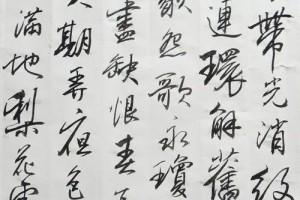 帶光消紋
連環解舊
歇怨歌永瓊
盡缺恨春
期弄夜色
滿地梨花雪